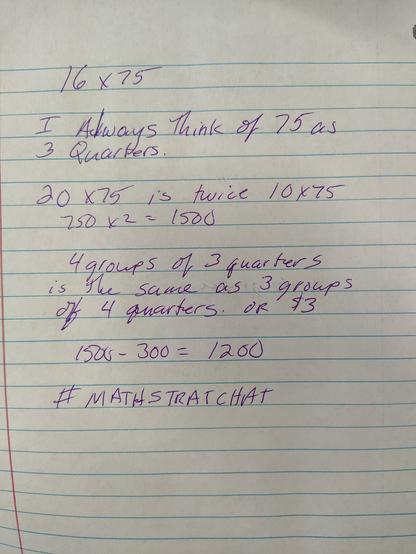 16 x 75
I Always Think of 75 as
3 Quarters.
20 x 75 is twice 10 x 75
750 x 2 = 1500
4 groups of 3 quarters
is the same as 3 groups
of 4 quarters. OR $3
1500 - 300 = 1200
# MATHSTRATCHAT